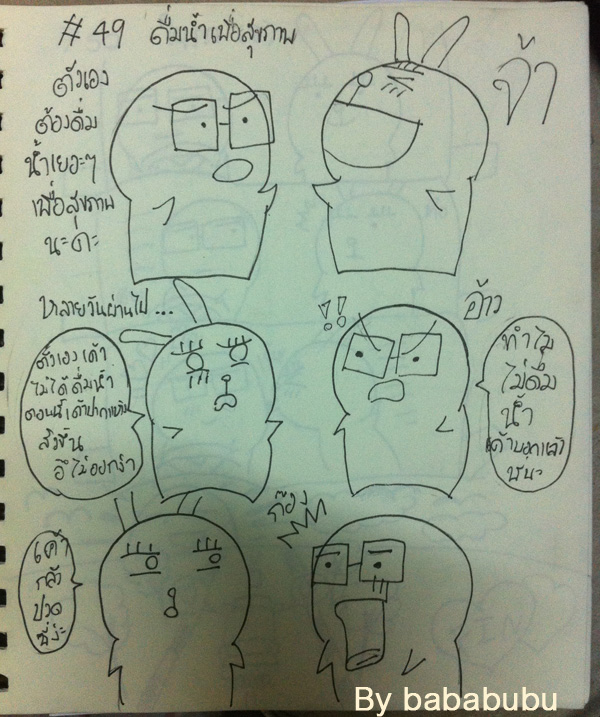 #49 ดื่มน้ำเพื่อสุขภาพ
ตัวเอง
ต้องดื่ม
น้ำเยอะๆ
เพื่อสุขภาพ
นะคะ
จ้า
หลายวันผ่านไป...
ตัวเอง เค้า
ไม่ได้ดื่มน้ำ
ตอนนี้เค้าปากแห้ง
อึไม่ออก
!!
อ้าว
ทำไม
ไม่ดื่ม
น้ำ
เค้าบอกแล้ว
เค้า
กลัว
ปวด
ฉี่ง่ะ
By bababubu